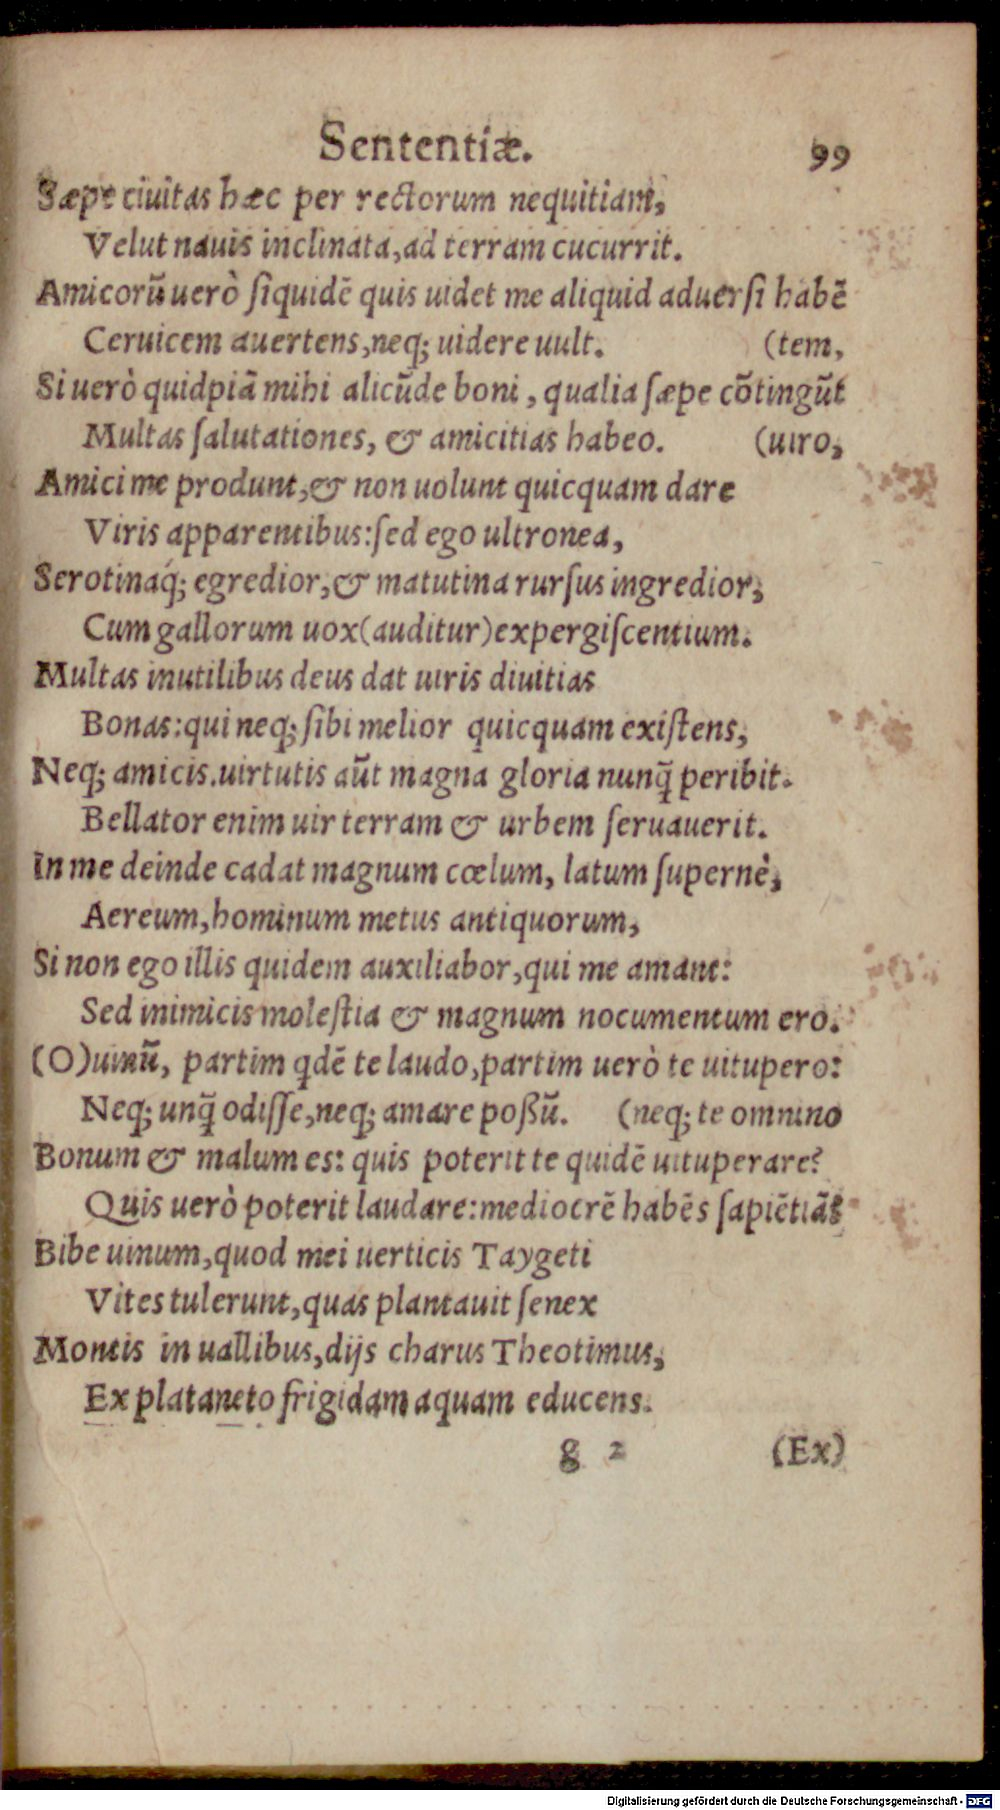 Sententiæ. 99
Sæpe ciuitas hæc per rectorum nequitiam,
Velut nauis inclinata, ad terram cucurrit.
Amicorũ uerò ſiquidẽ quis uidet me aliquid aduerſi habẽ
Ceruicem auertens, neq; uidere uult. (tem,
Si uerò quidpiã mihi alicũde boni, qualia ſæpe cõtingũt
Multas ſalutationes, & amicitias habeo. (uiro,
Amici me produnt, & non uolunt quicquam dare
Viris apparentibus: ſed ego ultronea,
Serotinaq́; egredior, & matutina rurſus ingredior,
Cum gallorum uox (auditur) expergiſcentium.
Multas inutilibus deus dat uiris diuitias
Bonas: qui neq; ſibi melior quicquam exiſtens,
Neq; amicis. uirtutis aũt magna gloria nunq̃ peribit.
Bellator enim uir terram & urbem ſeruauerit.
In me deinde cadat magnum cœlum, latum ſupernè,
Aereum, hominum metus antiquorum,
Si non ego illis quidem auxiliabor, qui me amant:
Sed inimicis moleſtia & magnum nocumentum ero.
(O) uinũ, partim qdẽ te laudo, partim uerò te uitupero:
Neq; unq̃ odiſſe, neq; amare poßũ. (neq; te omnino
Bonum & malum es: quis poterit te quidẽ uituperare?
Quis uerò poterit laudare: mediocrẽ habẽs ſapiẽtiã?
Bibe uinum, quod mei uerticis Taygeti
Vites tulerunt, quas plantauit ſenex
Montis in uallibus, dijs charus Theotimus,
Ex plataneto frigidam aquam educens.
g 2 (Ex)
Digitalisierung gefördert durch die Deutsche Forschungsgemeinschaft - DFG